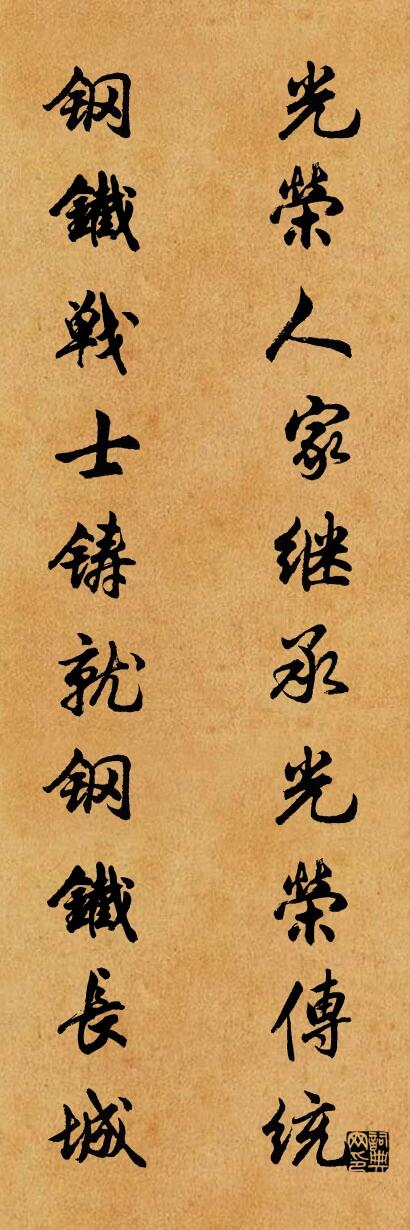 光榮人家继承光榮傳统
钢鐵战士铸就钢鐵長城
詞典网印